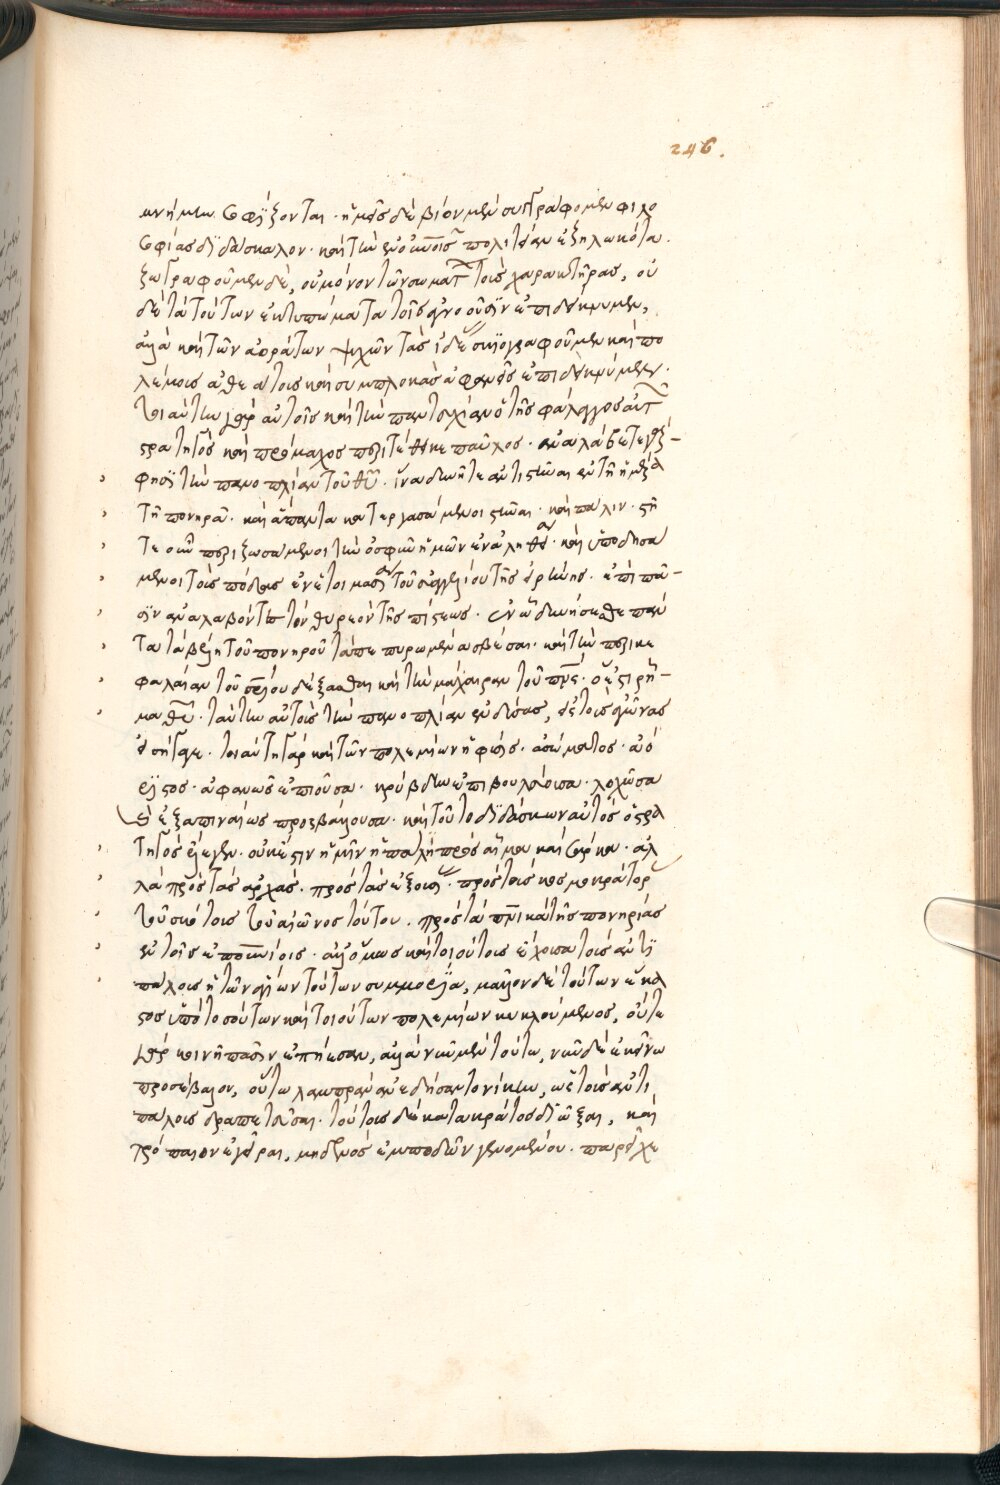 246.
μνήμην ὀφείξονται· ἡμεῖς δὲ βίον μὲν συγγράφομεν φιλο
σοφίας διδάσκαλον· καὶ τὴν ἐν οὐνοῖς πολιτείαν ἐζηλωκότα.
ζωγραφοῦμεν δὲ, οὐ μόνον τῶν σωμάτ τοὺς χαρακτῆρας, οὐ
δὲ τὰ τούτων ἐκτυπώματα τοῖς ἀγνοοῦσιν ἐπιδείκνυμεν,
ἀλλὰ καὶ τῶν ἀοράτων ψυχῶν τὰς ἰδέ σκιογραφοῦμεν καὶ πο
λέμους ἀθεάτους καὶ συμπλοκὰς ἀφανεῖς ἐπιδείκνυμεν·
τοιαύτην γὰρ αὐτοῖς καὶ τὴν παντευχίαν ὁ τῆς φάλαγγος αὐτ
στρατηγὸς καὶ πρόμαχος περιτέθεικε παῦλος· ἀναλάβετε γὰρ
φησὶ τὴν πανοπλίαν τοῦ θυ. ἵνα δυνῆτε ἀντιστῆναι ἐν τῇ ἡμέρα
τῇ πονηρᾷ· καὶ ἅπαντα κατεργασάμενοι στῆναι· καὶ πάλιν· στῆ
τε οὖν περιζωσάμενοι τὴν ὀσφὺν ἡμῶν ἐν ἀληθεί· καὶ ὑποδησά
μενοι τοὺς πόδας ἐν ἑτοιμασί τοῦ εὐαγγελίου τῆς εἰρήνης· ἐπὶ πᾶ–
σιν ἀναλαβόντες τὸν θυρεὸν τῆς πίστεως· ἐν ᾧ δυνήσεσθε πάν
τα τὰ βέλη τοῦ πονηροῦ τὰ πεπυρωμένα σβέσαι· καὶ τὴν περικε
φαλαίαν τοῦ σρίου δέξασθαι καὶ τὴν μάχαιραν τοῦ πνς· ὅ ἐστι ῥῆ–
μα θυ· ταύτην αὐτοῖς τὴν πανοπλίαν ἐνδύσας, εἰς τοὺς ἀγῶνας
εἰσήγαγε· τοιαύτη γὰρ καὶ τῶν πολεμίων ἡ φύσις· ἀσώματος· ἀό
ριστος· ἀφανῶς ἐπιοῦσα· κρύβδην ἐπιβουλεύουσα· λοχῶσα
καὶ ἐξαπιναίως προσβάλλουσα· καὶ τοῦτο διδάσκων αὐτὸς ὁ στρα
τηγὸς ἔλεγεν· οὐκ ἔστιν ἡμῖν ἡ πάλη πρὸς αἷμα καὶ σάρκα· ἀλ
λὰ πρὸς τὰς ἀρχάς· πρὸς τὰς ἐξουσί· πρὸς τοὺς κοσμοκράτορ
τοῦ σκότους τοῦ αἰῶνος τούτου. πρὸς τὰ πνικὰ τῆς πονηρίας
ἐν τοῖς ἐπουνίοις· ἀλλ' ὅμως καὶ τοιούτους ἔχουσα τοὺς ἀντι
πάλους ἡ τῶν ἁγίων τούτων συμμορία, μᾶλλον δὲ τούτων ἕκα
στος ὑπὸ τοσούτων καὶ τοιούτων πολεμίων κυκλούμενος, οὔτε
γὰρ κοινῇ πᾶσιν ἐπῄεσαν, ἀλλὰ νῦν μὲν τούτω, νῦν δὲ ἐκείνω
προσέβαλον, οὕτω λαμπρὰν ἀνεδήσαντο νίκην, ὡς τοὺς ἀντι
πάλους δραπετεῦσαι· τούτους δὲ κατακράτος διῶξαι, καὶ
τρόπαιον ἐγεῖραι, μηδενὸς ἐμποδὼν γενομένου· παρεῖχε